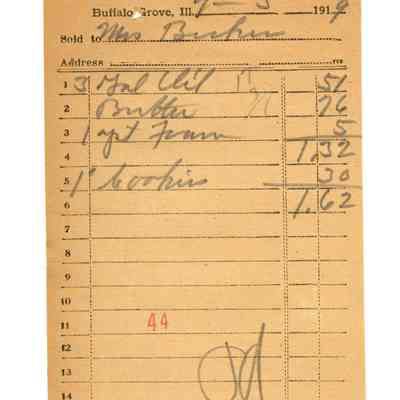 Buffalo Grove, Ill. 9-3 1919
Sold to Mrs
Address
1 3 Gal Oil 17 51
2 Butter 76
3 1 5
4 1.32
5 1 Cookies 30
6 1.62
7
8
9
10
11 44
12
13
14